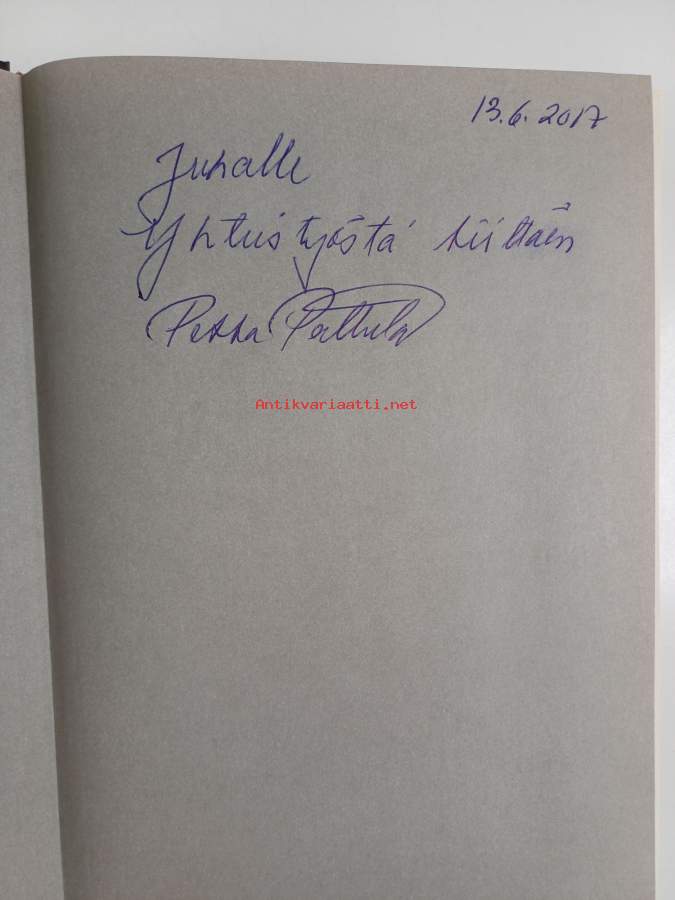 13.6.2017
Juhalle
Yhteistyöstä kiittäen
Pekka
Antikvariaatti.net